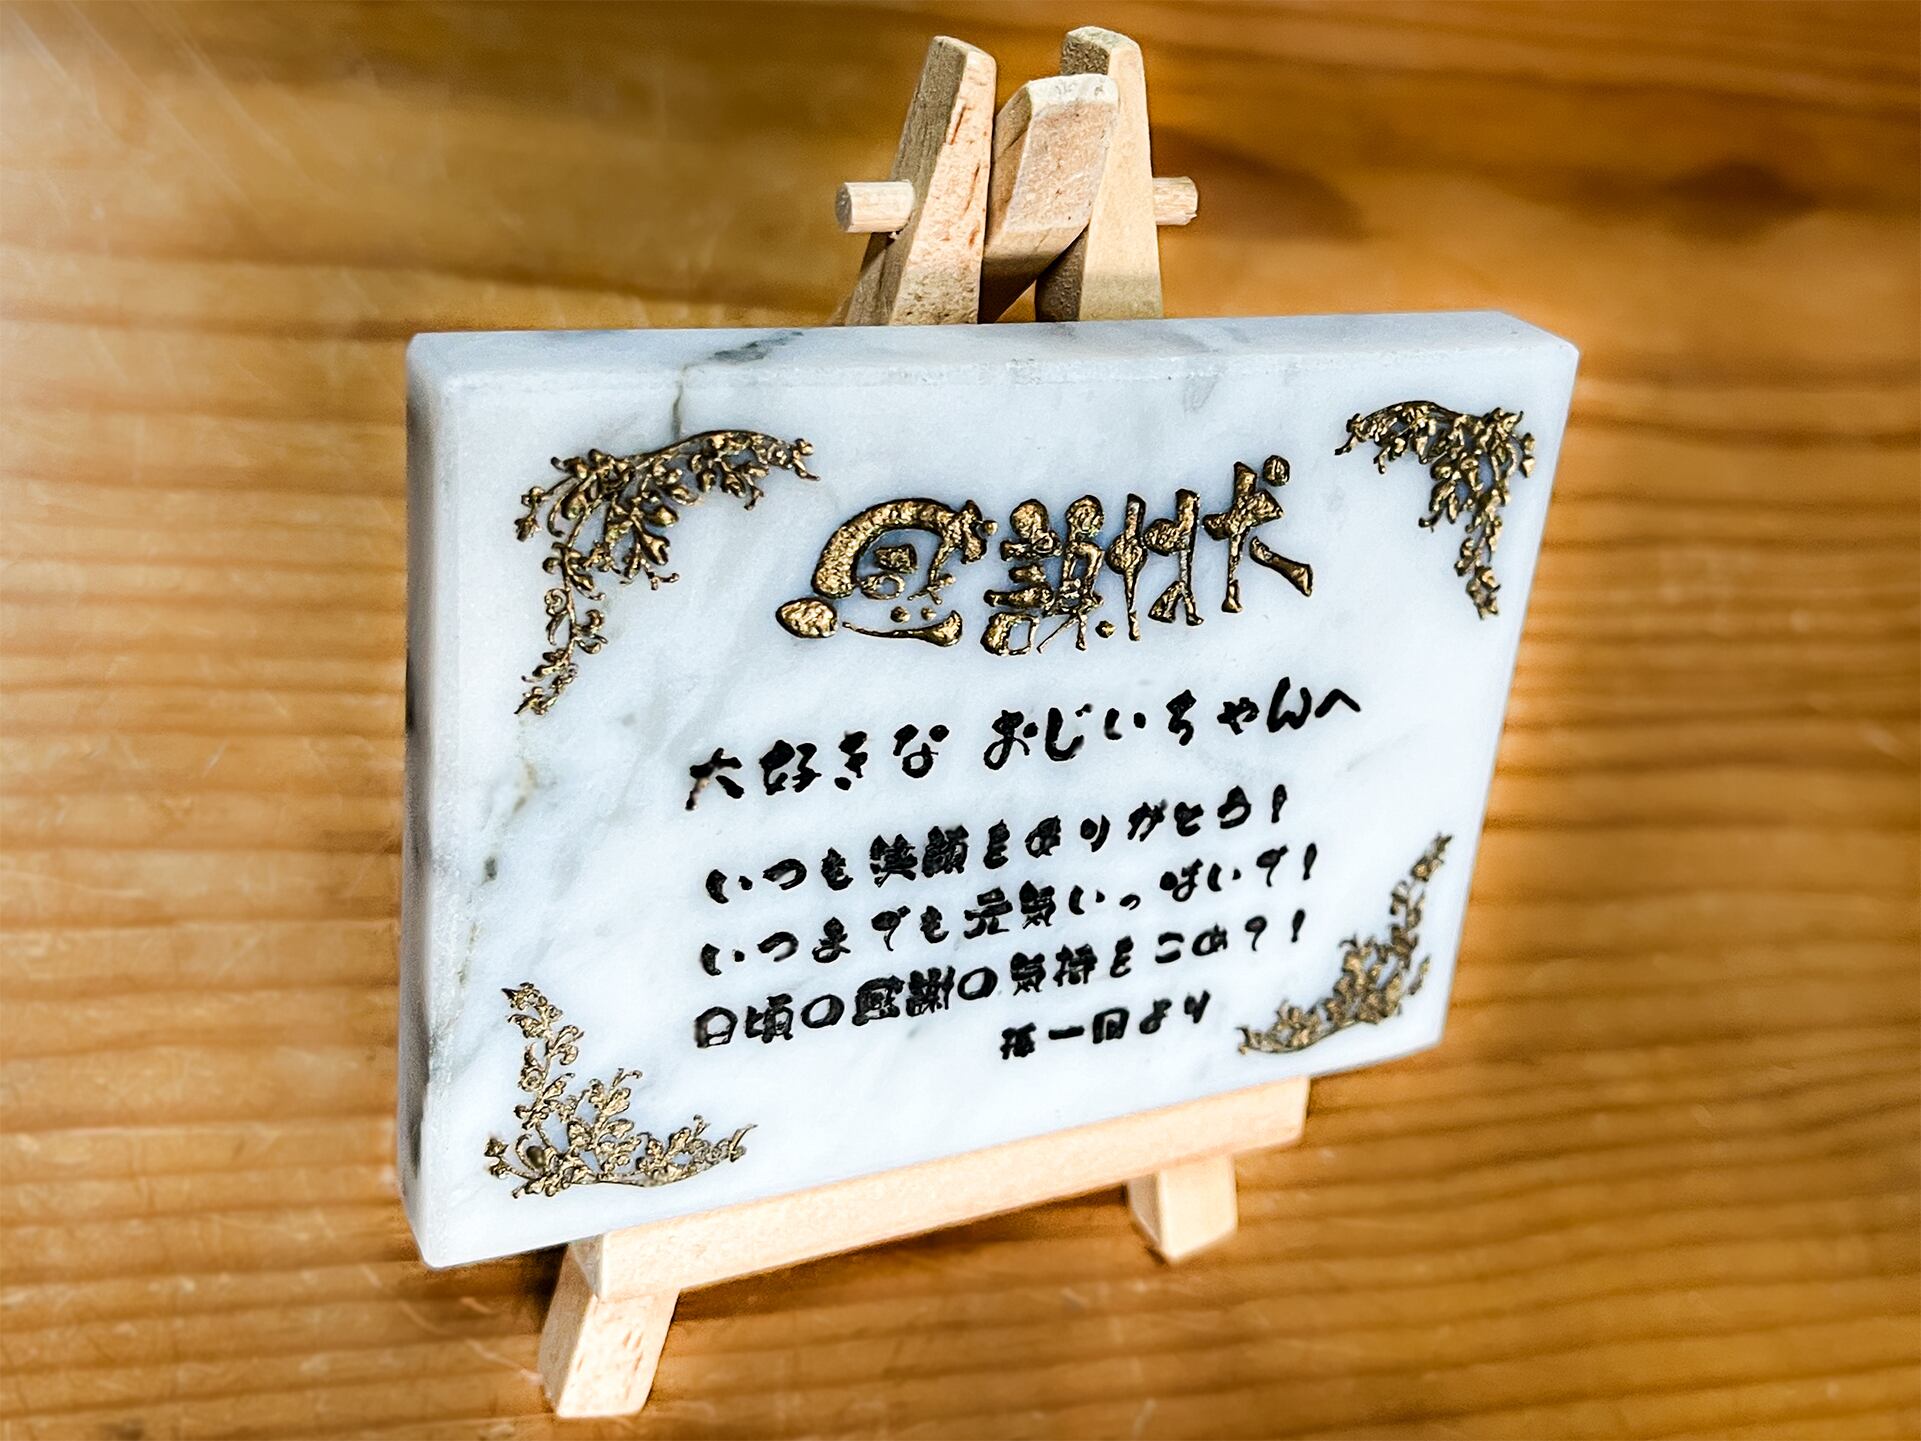 感謝状
大好きな おじいちゃんへ
いつも笑顔をありがとう!
いつまでも元気いっぱいで!
日頃の感謝の気持をこめて!
孫一同より